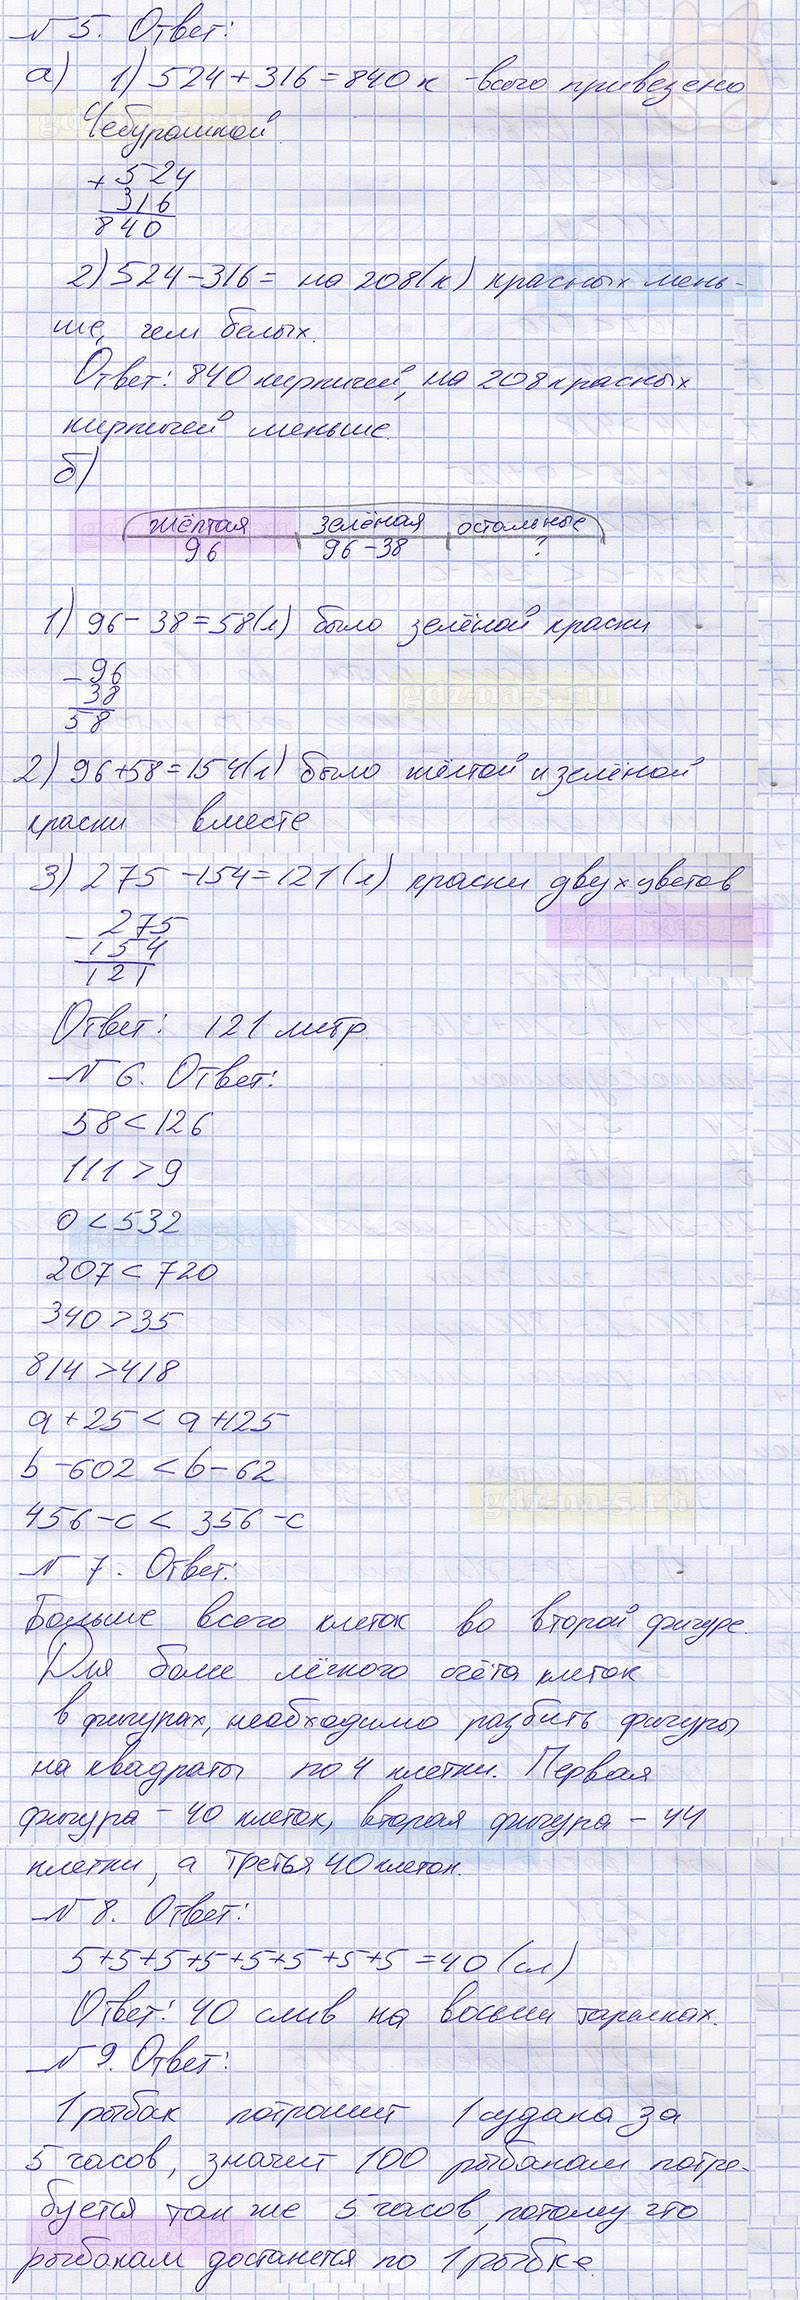 № 5. Ответ:
а) 1) 524 + 316 = 840 к - всего привезено
Чебурашкой.
+ 524
316
840
2) 524 - 316 = на 208 (к) красных мень-
ше, чем белых.
Ответ: 840 кирпичей, на 208 красных
кирпичей меньше.
б)
жёлтая зелёная остальные
96 96 - 38 ?
1) 96 - 38 = 58 (л) было зелёной краски
- 96
38
58
2) 96 + 58 = 154 (л) было жёлтой и зелёной
краски вместе
3) 275 - 154 = 121 (л) краски двух цветов
- 275
154
121
Ответ: 121 литр.
№ 6. Ответ:
58 < 126
111 > 9
0 < 532
207 < 720
340 > 35
814 > 418
a + 25 < a + 125
b - 602 < b - 62
456 - c < 356 - c
№ 7. Ответ:
Больше всего клеток во второй фигуре.
Для более лёгкого счёта клеток
в фигурах, необходимо разбить фигуры
на квадраты по 4 клетки. Первая
фигура - 40 клеток, вторая фигура - 44
клетки, а третья 40 клеток.
№ 8. Ответ:
5 + 5 + 5 + 5 + 5 + 5 + 5 + 5 = 40 (сл)
Ответ: 40 слив на восьми тарелках.
№ 9. Ответ:
1 рыбак потрошит 1 судака за
5 часов, значит 100 рыбакам потре-
буется так же 5 часов, потому что
рыбакам достанется по 1 рыбке.
gdz-na-5.ru
gdz-na-5.ru
gdz-na-5.ru